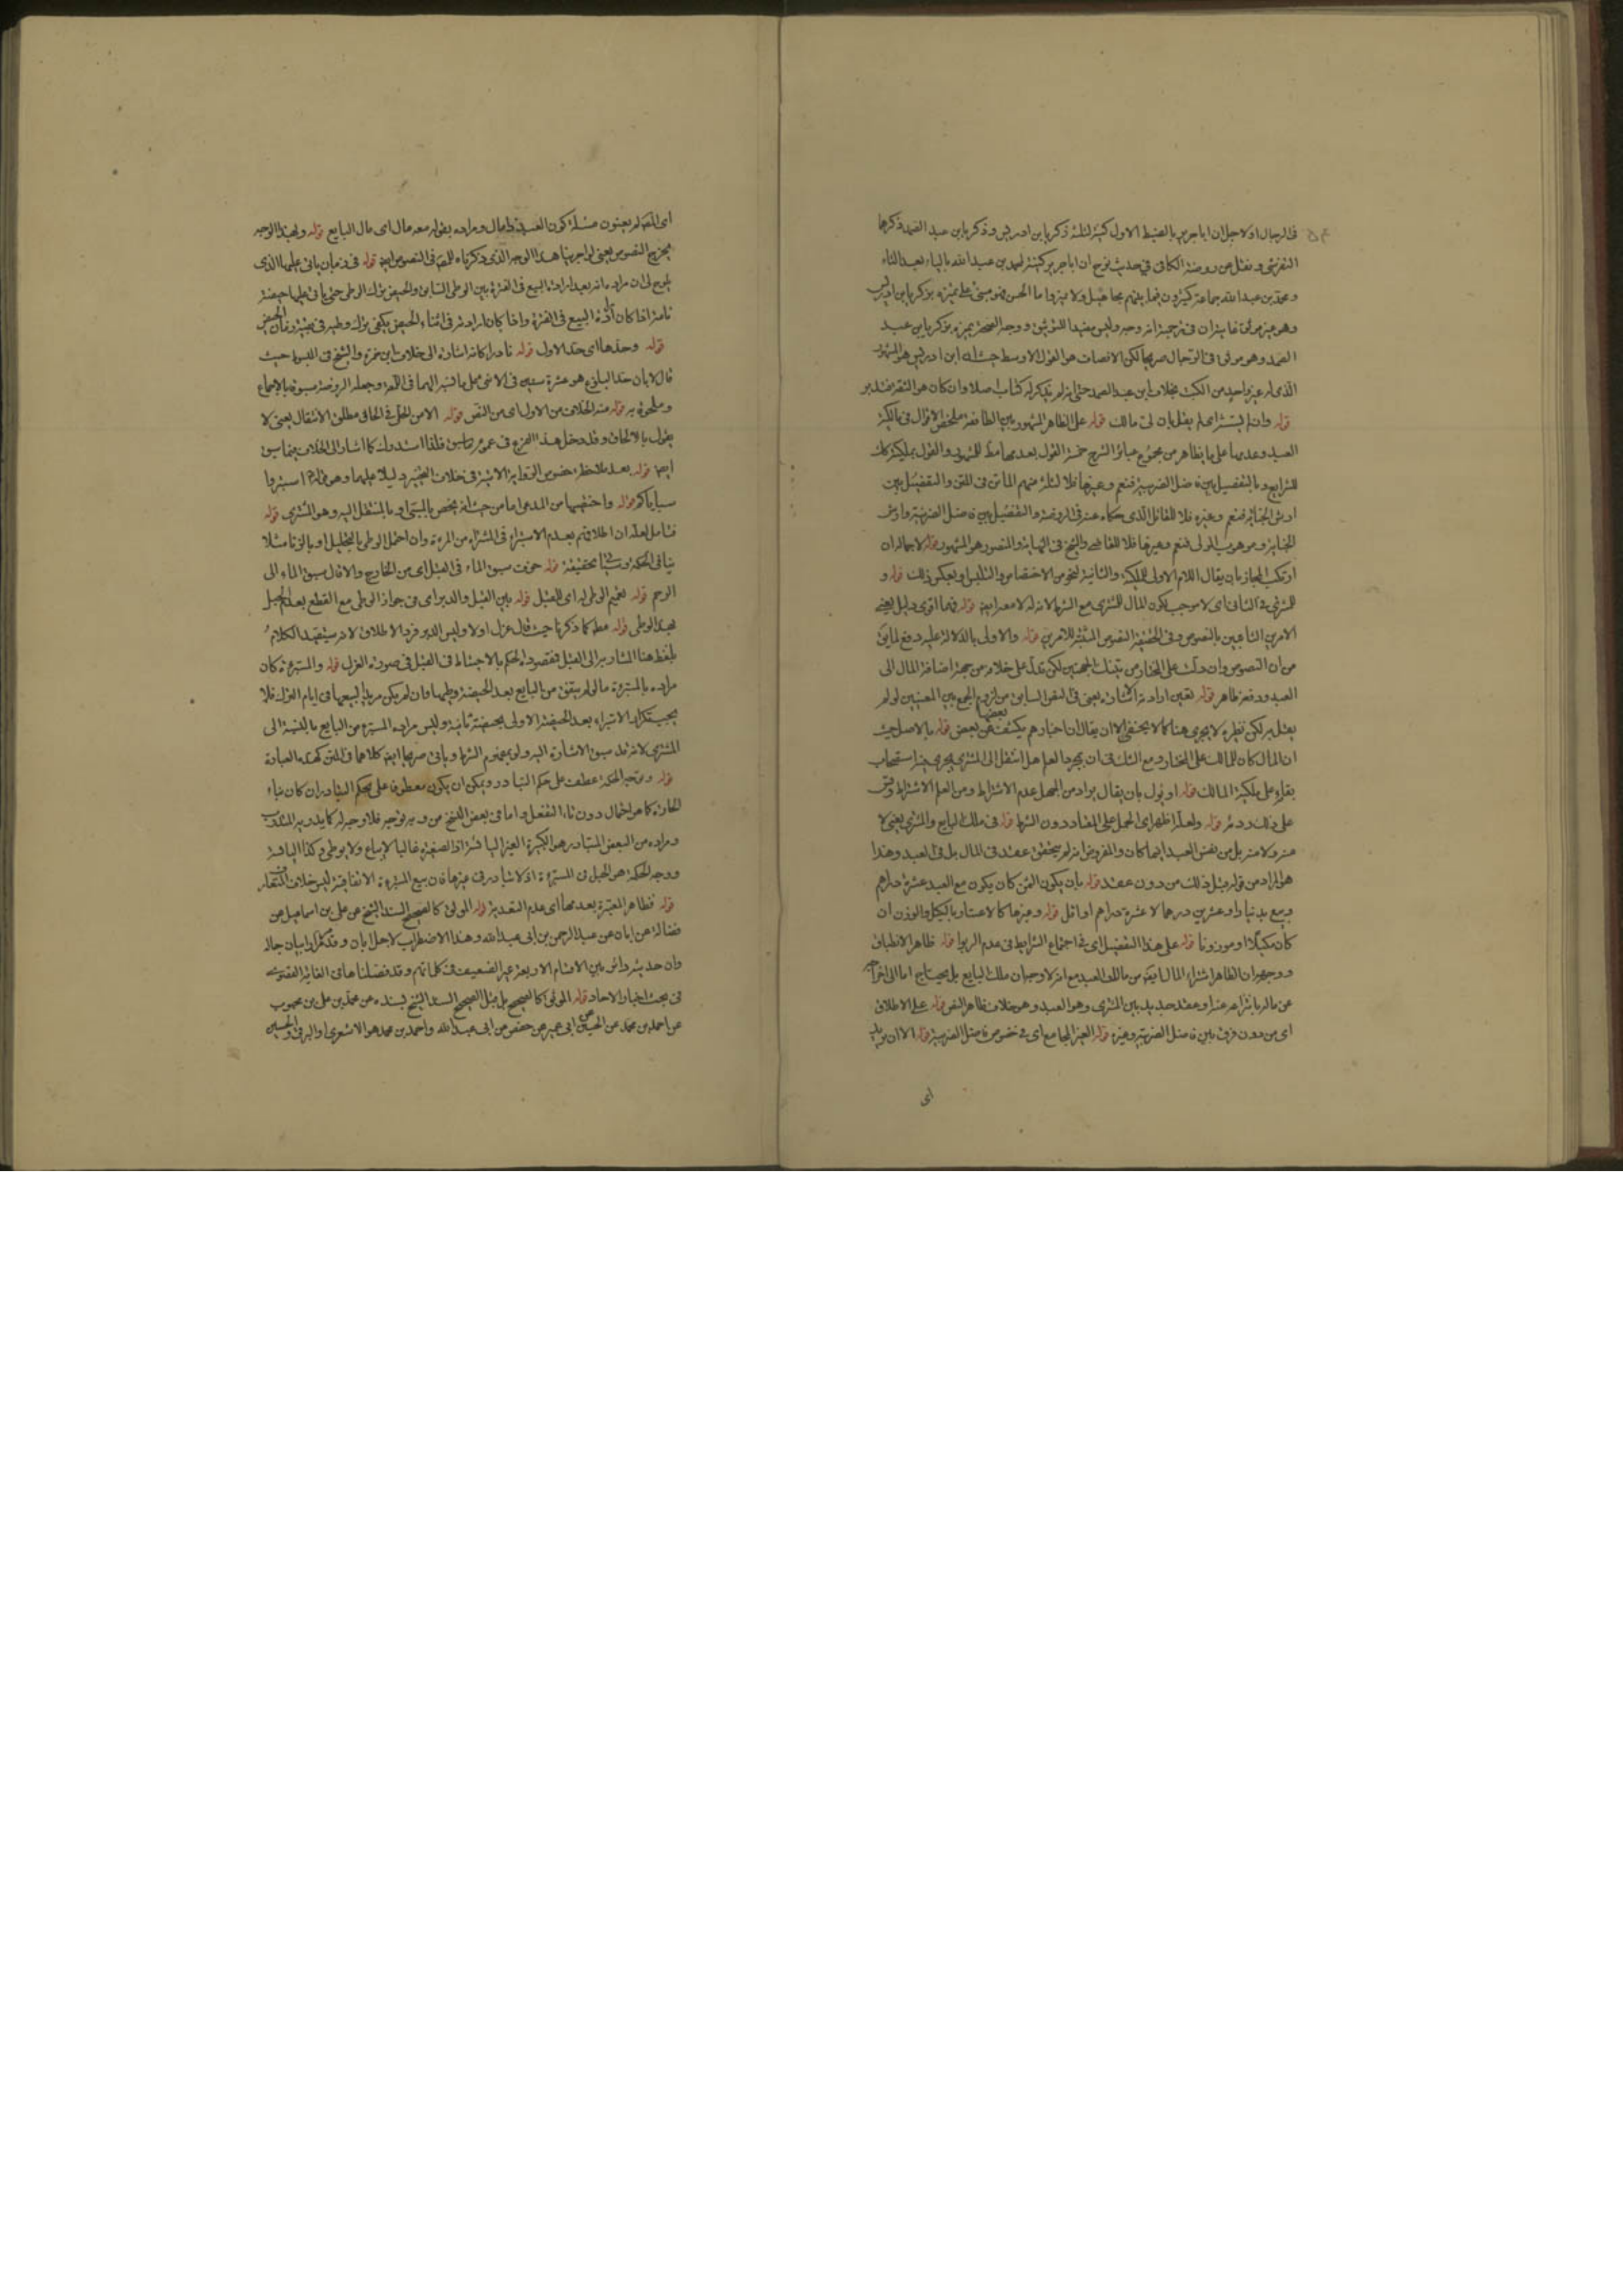 في الرجال اولا جل ان اباجرير بالضبط الاول كنية لثلثة زكريا بن ادريس وزكريا بن عبد الصمد ذكرهما
التفرشي ونقل عن روضة الكافي في حديث نوح ان اباجرير كنية لمحمد بن عبيد الله بالياء بعد التاء
ومحمد بن عبد الله جماعة كثيرون
وهو غير موثق غايته ان في ترجمته انه وجه وليس مفيدا للتوثيق ووجه الصحة تميزه بزكريا بن عبد
الصمد وهو موثق في الرجال صريحا لكن الانصاف هو القول الاوسط حيث انه ابن ادريس هو المشهور
الذي له غير واحد من الكتب بخلاف ابن عبد الصمد حتى انه لم يذكر له كتاب اصلا وان كان هو الثقة فتدبر
قوله وان لم يستثن اي لم يقل بان لي مالك قوله على الظاهر المشهور بين الطائفة ملخص الاقوال في مالكية
العبد وعدمها على ما يظاهر من مجموع عبائر الشرح خمسة القول بعدمها مط للمشهور والقول بمليكته كك
للشرايع وبالتفصيل بين فاضل الضريبة فنعم وغيرها فلا لثلثة منهم الماتن في المتن والتفصيل بين
ارش الجناية فنعم وغيره فلا للقائل الذي حكاه عنه في الروضة والتفصيل بين فاضل الضريبة وارش
الجناية وموهوب المولى فنعم وغيرها فلا للقاضي والشيخ في النهاية والمنصور هو المشهور قوله لاجماله ان
ارتكب المجاز بان يقال اللام الاولى للملكية والثانية لنحو من الاختصاص والتلبس او بعكس ذلك قوله و
للشرط في الثاني اي لا موجب لكون المال للمشتري مع الشرط الا نه له لا معه ايضا قوله فيما اقوى دليل يعني
الامرين الثابتين بالنصوص وفي الحقيقة النصوص المثبتة للامرين قوله والاولى بالدلالة عليه دفع لما يق
من ان النصوص وان دلت على المختار من تينك الجهتين لكن تدل على خلافه من جهة اضافة المال الى
العبد ودفعه ظاهر قوله تعين ارادة الاشارة يعني في النص السابق من لزوم الجمع بين المعنيين لو لم
يقل به لكن نظيره لا يجري هنا كما لا يخفى الا ان يقال ان اخبارهم يكشف بعضها عن بعض قوله بالاصل حيث
ان المال كان للمالك على المختار ومع الشك في ان بمجرد العلم هل انتقل الى المشتري يجري فيه استصحاب
بقاؤه على ملكية المالك قوله او يؤل بان يقال يراد من الجهل عدم الاشتراط ومن العلم الاشتراط وقس
على ذلك ودعه قوله ولعله اظهر اي الحمل على المقاد دون الشرط قوله في ملك البايع والمشتري يعني لا
عنه ولا منه بل من نفس العبد ايهما كان والمفروض انه لم يتحقق عقد في المال بل في العبد وهذا
هو المراد من قوله قبل ذلك من دون عقد قوله بان يكون الثمن كان يكون مع العبد عشرة دراهم
وبيع بدينار او عشرين درهما لا عشرة دراهم او اقل قوله وغيرها كالاعتبار بالكيل والوزن ان
كان مكيلا او موزونا قوله على هذا التفصيل اي في اجتماع الشرايط في عدم الربوا قوله ظاهر الانطباق
ووجهه ان الظاهر اشتراء المال ايضا من مالك العبد مع انه لا وجه ان ملك البايع بل يحتاج اما الى اخراجه
عن ماله باشراءه عنه او عقد جديد بين المشتري وهو العبد وهو خلاف ظاهر النص قوله على الاطلاق
اي من دون فرق بين فاضل الضريبة وغيره قوله الغير الجامع اي في خصوص فاضل الضريبة قوله الا ان يريد
اي
اي المص لم يعنون مسئلة كون العبد ذا مال ومراده بقوله معه مال اي مال البايع قوله وبهذا الوجه
يخرج النصوص يعني لو اجرينا هذا الوجه الذي ذكرناه للمص في النصوص ايضا قوله في زمان ياتي عليها الذي
يلوح لي ان مراده انه بعد ارادة البيع في الفترة بين الوطي السابق والحيض يترك الوطي حتى ياتي عليها حيضة
تامة اذا كان ارادة البيع في الفترة واذا كان ارادته في اثناء الحيض يكفي ترك وطيه في بقية زمان الحيض
قوله وحدها اي حد الاول قوله نادرا كانه اشارة الى خلاف ابن حمزة والشيخ في المبسوط حيث
قالا بان حد البلوغ هو عشرة سنين في الانثى
وملحوق به قوله منه الخلاف من الاول اي من النقص قوله الا من الحلي في الحاق مطلق الانتقال يعني لا
يقول بالالحاق وقد دخل هذا الفرع في عموم ما سبق فلذا استدرك كما اشار الى الخلاف فيما سبق
ايضا قوله بعد ملاحظة خصوص الرواية الاتية في خلاف
سباياكم قوله واخصيتها من المدعى اما من حيث انه يختص بالسبي او بالمنتقل اليه وهو المشتري قوله
فتامل لعله ان اطلاقهم بعدم الاستبراء في الشراء من المرءة وان احتمل الوطي بالتحليل او بالزنا مثلا
ينافي الحكمة قوله خوف سبق الماء في القبل اي من الخارج والا قال سبق الماء الى
الرحم قوله تعميم الوطي له اي للقبل قوله بين القبل والدبر اي في جواز الوطي مع القطع بعدم الحبل
بهذا الوطي قوله مط كما ذكرنا حيث قال عزل اولا وليس الدبر فردا لاطلاق لا
بلفظ هنا المشار به الى القبل فمقصوده الحكم بالاحتياط في القبل في صورة العزل قوله والمستبرءة كان
مراده بالمستبرءة ما لو لم يتفق من البايع بعد الحيضة وطيها وان لم يكن مريدا لبيعها في ايام العزل فلا
يجب تكرار الاستبراء بعد الحيضة الاولى بحيضة ثانية وليس مراده المستبرءة من البايع بالنسبة الى
المشتري لانه قد سبق الاشارة اليه ولو بمفهوم الشرط وياتي صريحا ايضا كلاهما في المتن كهذه العبارة
قوله وتوجيه الحكمة عطف على حكم التبادر ويمكن ان يكون معطوفا على بحكم التبادر ان كان بباء
الجارة كما هو احتمال دون تاء التفعل واما في بعض النسخ من وبه توجيه فلا وجه له كما يدريه المتدرب
ومراده من البعض المتبادر هو الكبيرة الغير اليائسة اذ الصغيرة غالبا لا يباع ولا يوطي وكذا اليائسة
ووجه الحكمة هو الحبل في المستبرءة
قوله فظاهر المعتبرة بعدمها اي عدم التعدية قوله الموثق كالصحيح السند الشيخ عن علي بن اسماعيل عن
فضالة عن ابان عن عبد الرحمن بن ابي عبد الله وهذا الاضطراب لاجل ابان وقد تكرر ايا بيان حاله
وان حديثه دائر بين الاقسام الاربعة غير الضعيف في كلماتهم وقد فصلناها في الغاية القصوى
في بحث اخبار الاحاد قوله الموثق كالصحيح بل مثل الصحيح السند الشيخ بسنده عن محمد بن علي بن محبوب
عن احمد بن محمد عن الحسين عن ابن ابي عمير عن حفص عن ابي عبد الله واحمد بن محمد هو الاشعري او البرقي والحسين